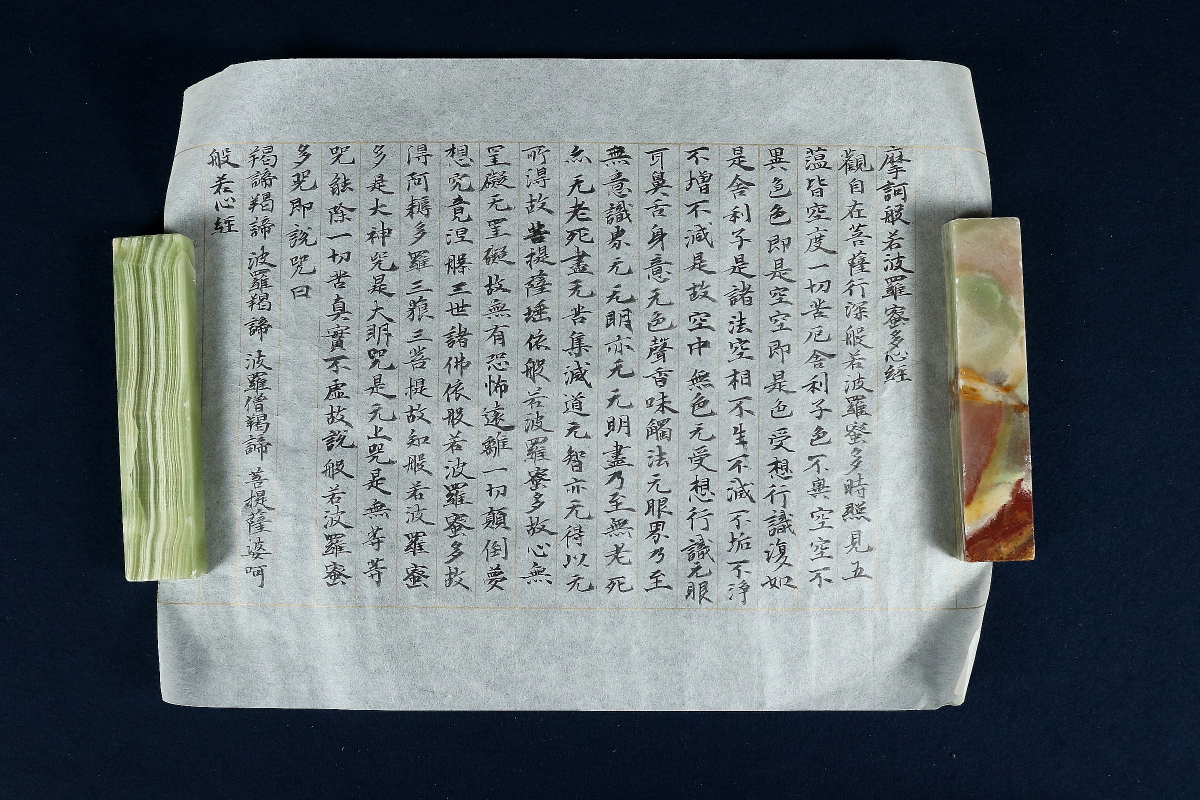 摩訶般若波羅蜜多心経
觀自在菩薩行深般若波羅蜜多時照見五
蕰皆空度一切苦厄舎利子色不異空空不
異色色即是空空即是色受想行識復如
是舎利子是諸法空相不生不滅不垢不浄
不増不減是故空中無色无受想行識无眼
耳鼻舌身意无色聲香味觸法无眼界乃至
無意識界无无明亦无无明盡乃至無老死
亦无老死盡无苦集滅道无智亦无得以无
所得故菩提薩埵依般若波羅蜜多故心無
罣礙无罣礙故無有恐怖遠離一切顛倒夢
想究竟涅槃三世諸佛依般若波羅蜜多故
得阿耨多羅三藐三菩提故知般若波羅蜜
多是大神咒是大明咒是无上咒是無等等
咒能除一切苦真實不虚故説般若波羅蜜
多咒即説咒曰
羯諦羯諦 波羅羯諦 波羅僧羯諦 菩提薩婆呵
般若心経